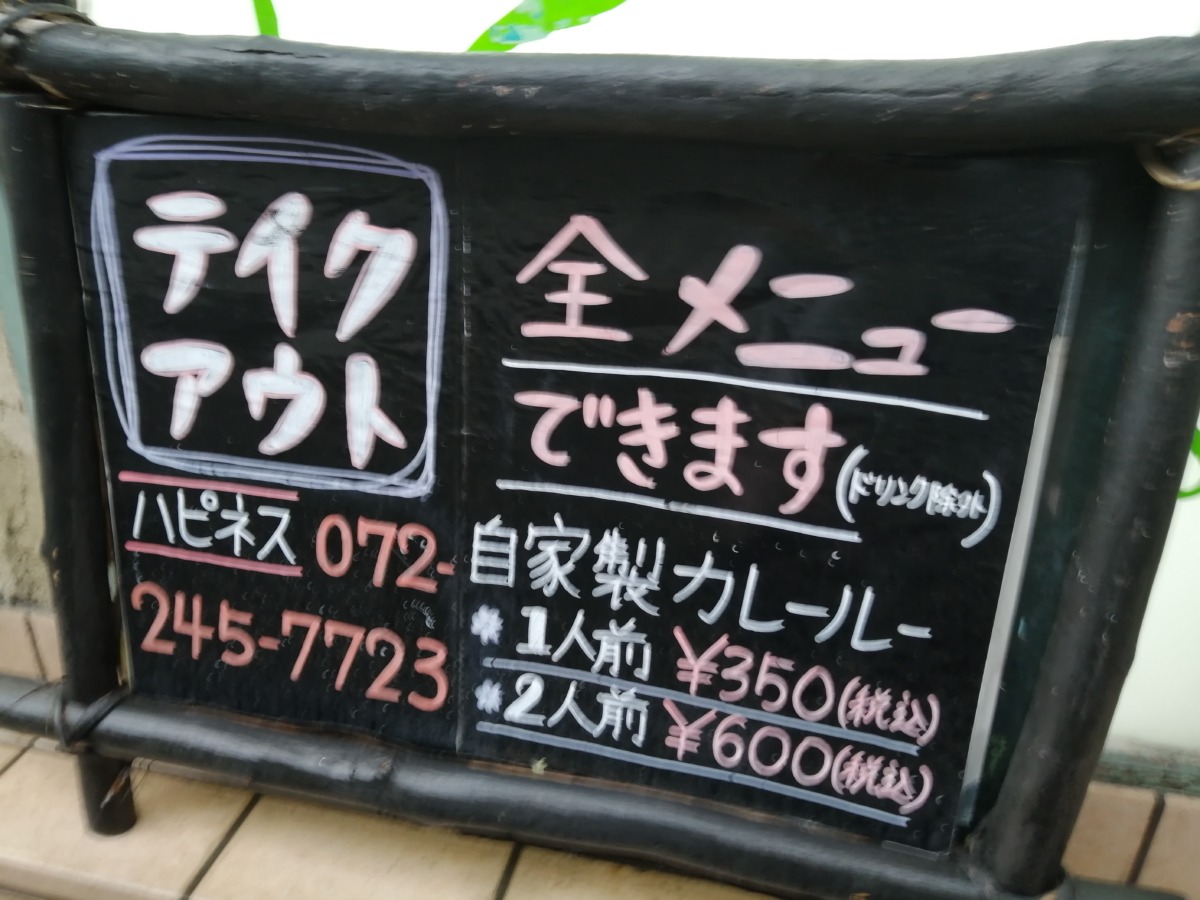 テイク
アウト
ハピネス 072-
245-7723
全メニュー
できます(ドリンク除外)
自家製カレールー
*1人前 ¥350(税込)
*2人前 ¥600(税込)